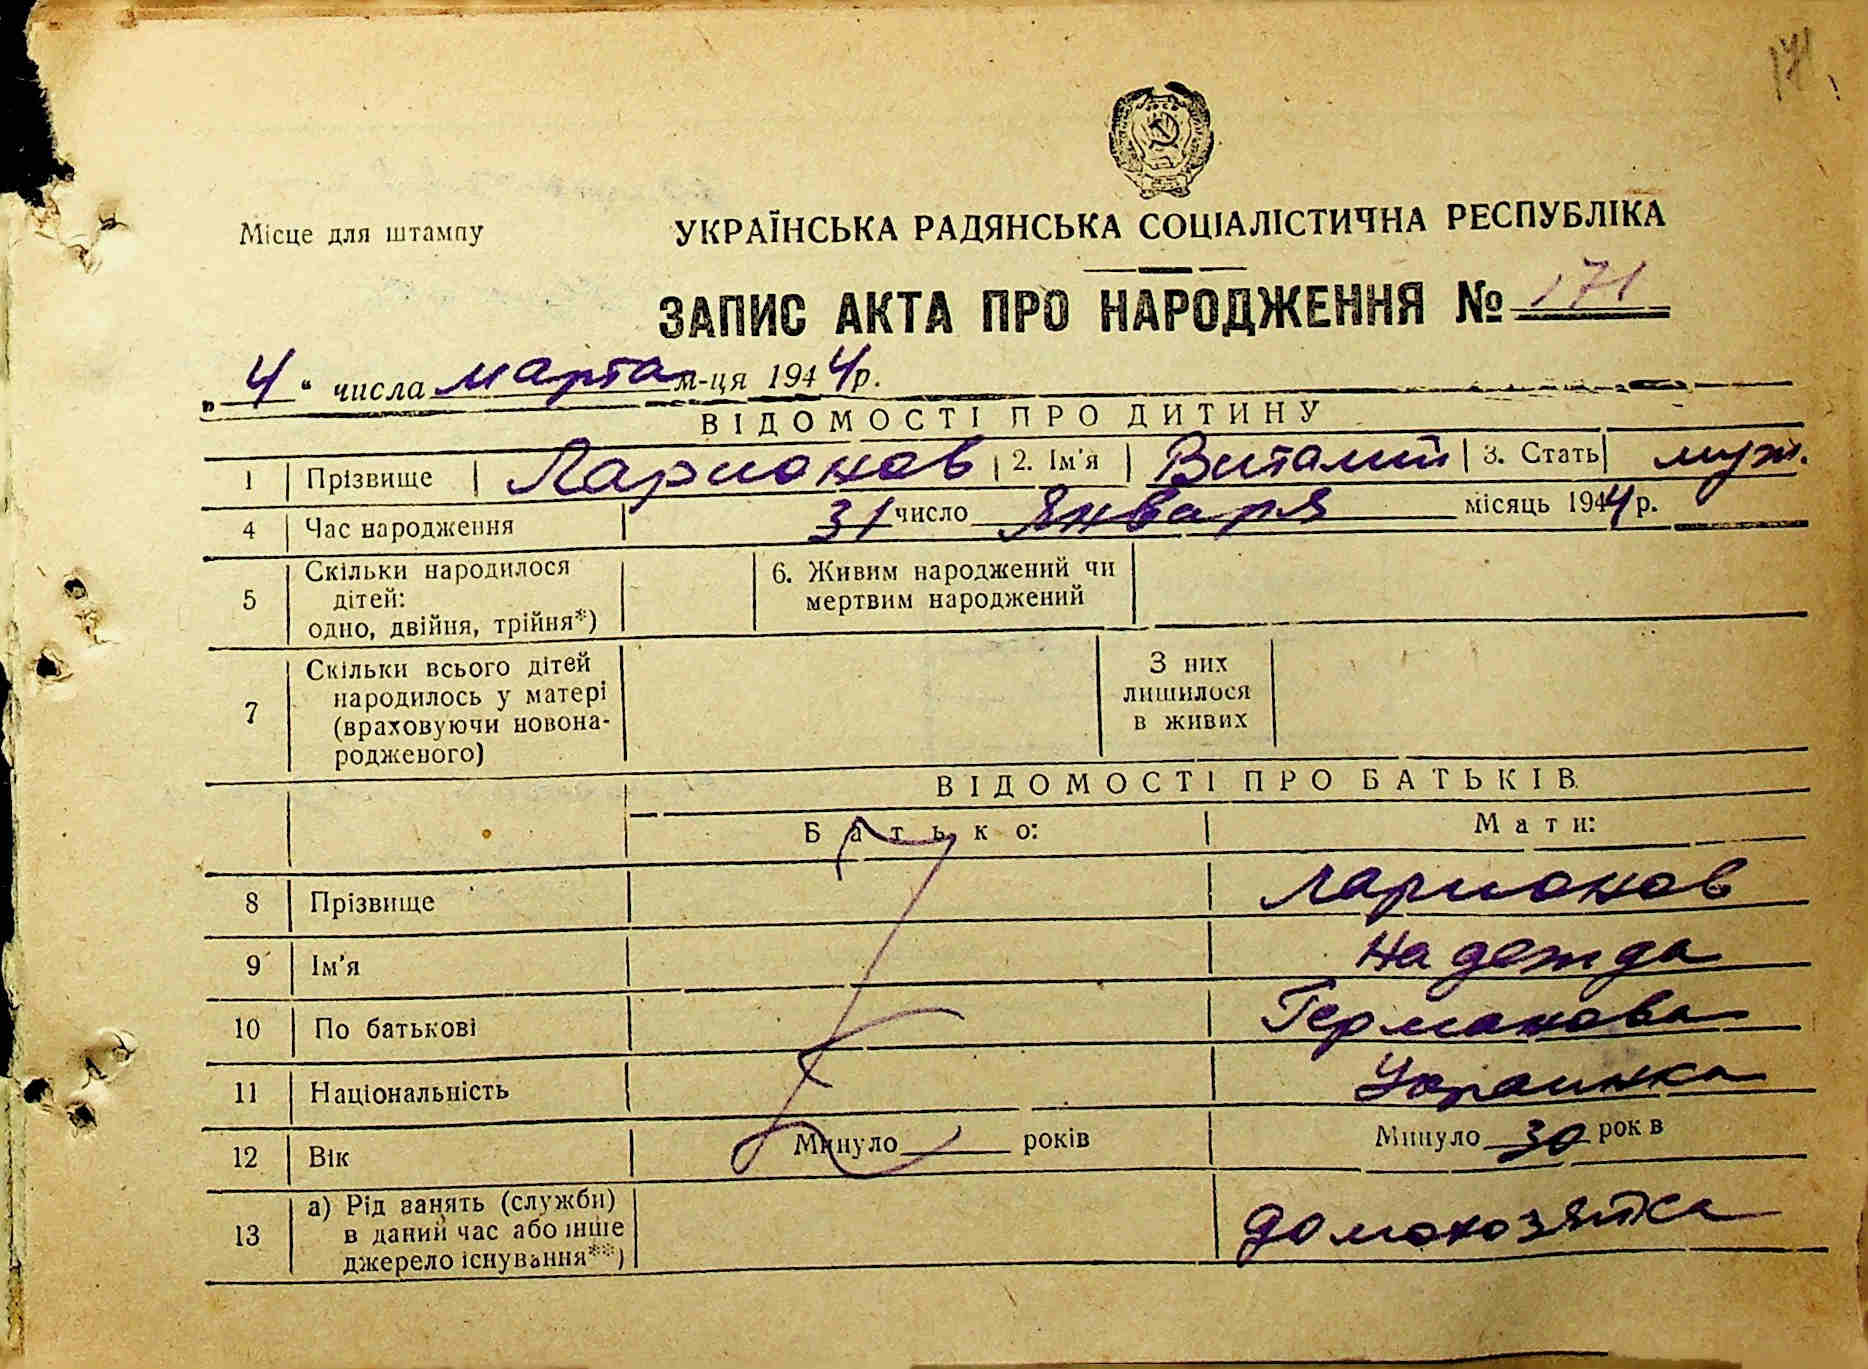 171
Місце для штампу
УКРАЇНСЬКА РАДЯНСЬКА СОЦІАЛІСТИЧНА РЕСПУБЛІКА
ЗАПИС АКТА ПРО НАРОДЖЕННЯ № 171
„4“ числа марта м-ця 1944 р.
ВІДОМОСТІ ПРО ДИТИНУ
1 Прізвище Ларионов 2. Ім'я Виталий 3. Стать муж.
4 Час народження 31 число Января місяць 1944 р.
5 Скільки народилося дітей: одно, двійня, трійня*) 6. Живим народжений чи мертвим народжений
7 Скільки всього дітей народилось у матері (враховуючи новонародженого) З них лишилося в живих
ВІДОМОСТІ ПРО БАТЬКІВ
Батько: Мати:
8 Прізвище Ларионов
9 Ім'я Надежда
10 По батькові Германовна
11 Національність Украинка
12 Вік Минуло років Минуло 30 рок в
13 а) Рід занять (служби) в даний час або інше джерело існування**) домохозяйка